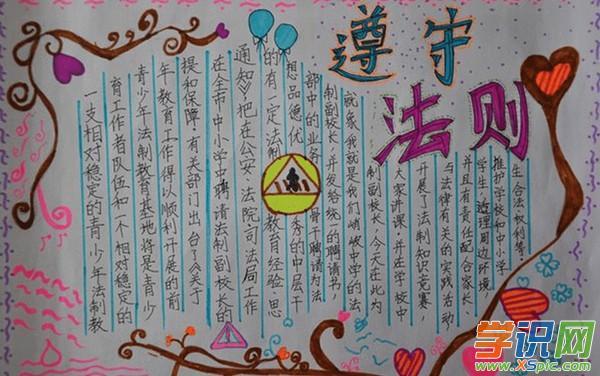 遵守
法则
一支相对稳定的青少年法制教
育工作者队伍和一个相对稳定的
青少年法制教育基地将是青少
年教育工作得以顺利开展的前
提和保障。有关部门出台了《关于
在全市中小学中聘请法制副校长的
通知》把在公安、法院、司法局工作
的有一定法制教育经验、思
想品德优秀的中层干
部中的业务骨干聘请为法
制副校长,并发给统一的聘请书,
就象我就是我们中学的法
制副校长,今天在此为
大家讲课,并在学校中
开展了法制知识竞赛
与法律有关的实践活动
并且有责任配合家长、
学生治理周边环境,
维护学校和中小学
生合法权利等。
学识网
www.XSpic.com